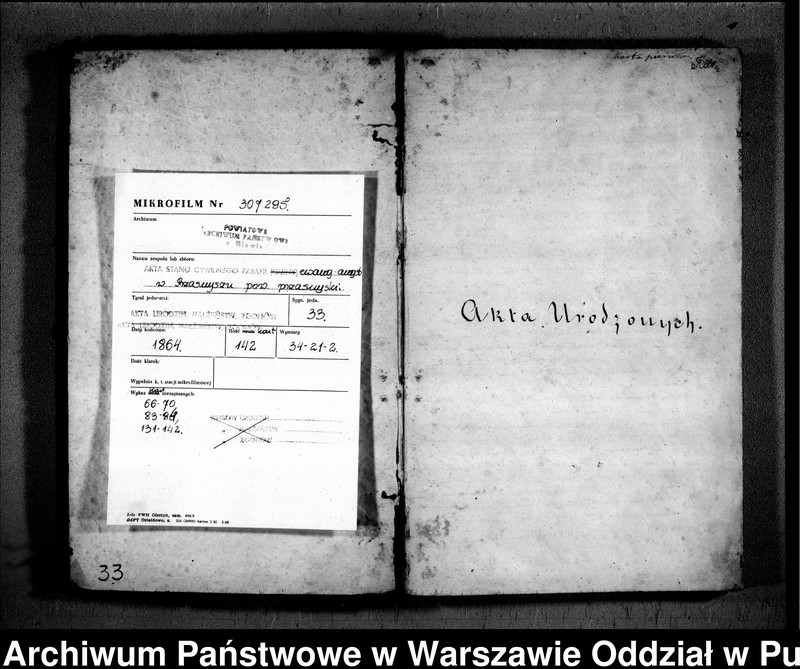 MIKROFILM Nr 307295.
Archiwum
POWIATOWE
ARCHIWUM PAŃSTWOWE
w Mławie
Nazwa zespołu lub zbioru:
AKTA STANU CYWILNEGO PARAFII ewang. augsb
w Przasnyszu pow. przasnyski.
Tytuł jednostki:
Sygn. jedn.
AKTA URODZIN, MAŁŻEŃSTW, ZGONÓW
33.
Daty końcowe:
Ilość kart
Wymiary
1864.
142
34-21-2.
Ilość klatek:
Wypełnia k. t. stacji mikrofilmowej
Wykaz kart niezapisanych:
66-70,
83-84,
131-142.
WPISÓW URODZEŃ
" MAŁŻEŃSTW
" ZGONÓW
33
Karta pierwsza
Akta Urodzonych.
Archiwum Państwowe w Warszawie Oddział w Pu